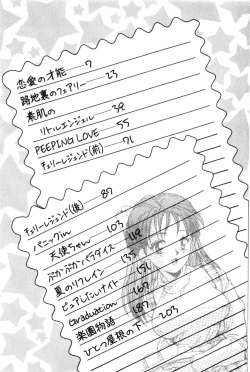 恋愛の才能 7
路地裏のフェアリー 23
素肌の
リトルエンジェル 39
PEEPING LOVE 55
チェリーレジェンド(前) 71
チェリーレジェンド(後) 87
パニックin 103
天使ちゃん 119
ぷかぷかパラダイス 135
夏のリフレイン 151
ピュアしたいナイト 169
Graduation 187
楽園物語 203
ひとつ屋根の下